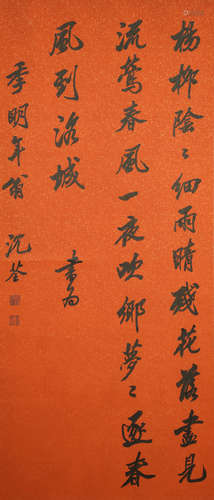 楊柳陰〻細雨晴殘花落盡見
流鶯春風一夜吹鄉夢〻逐春
風到洛城
書為
季明年翁
沈荃